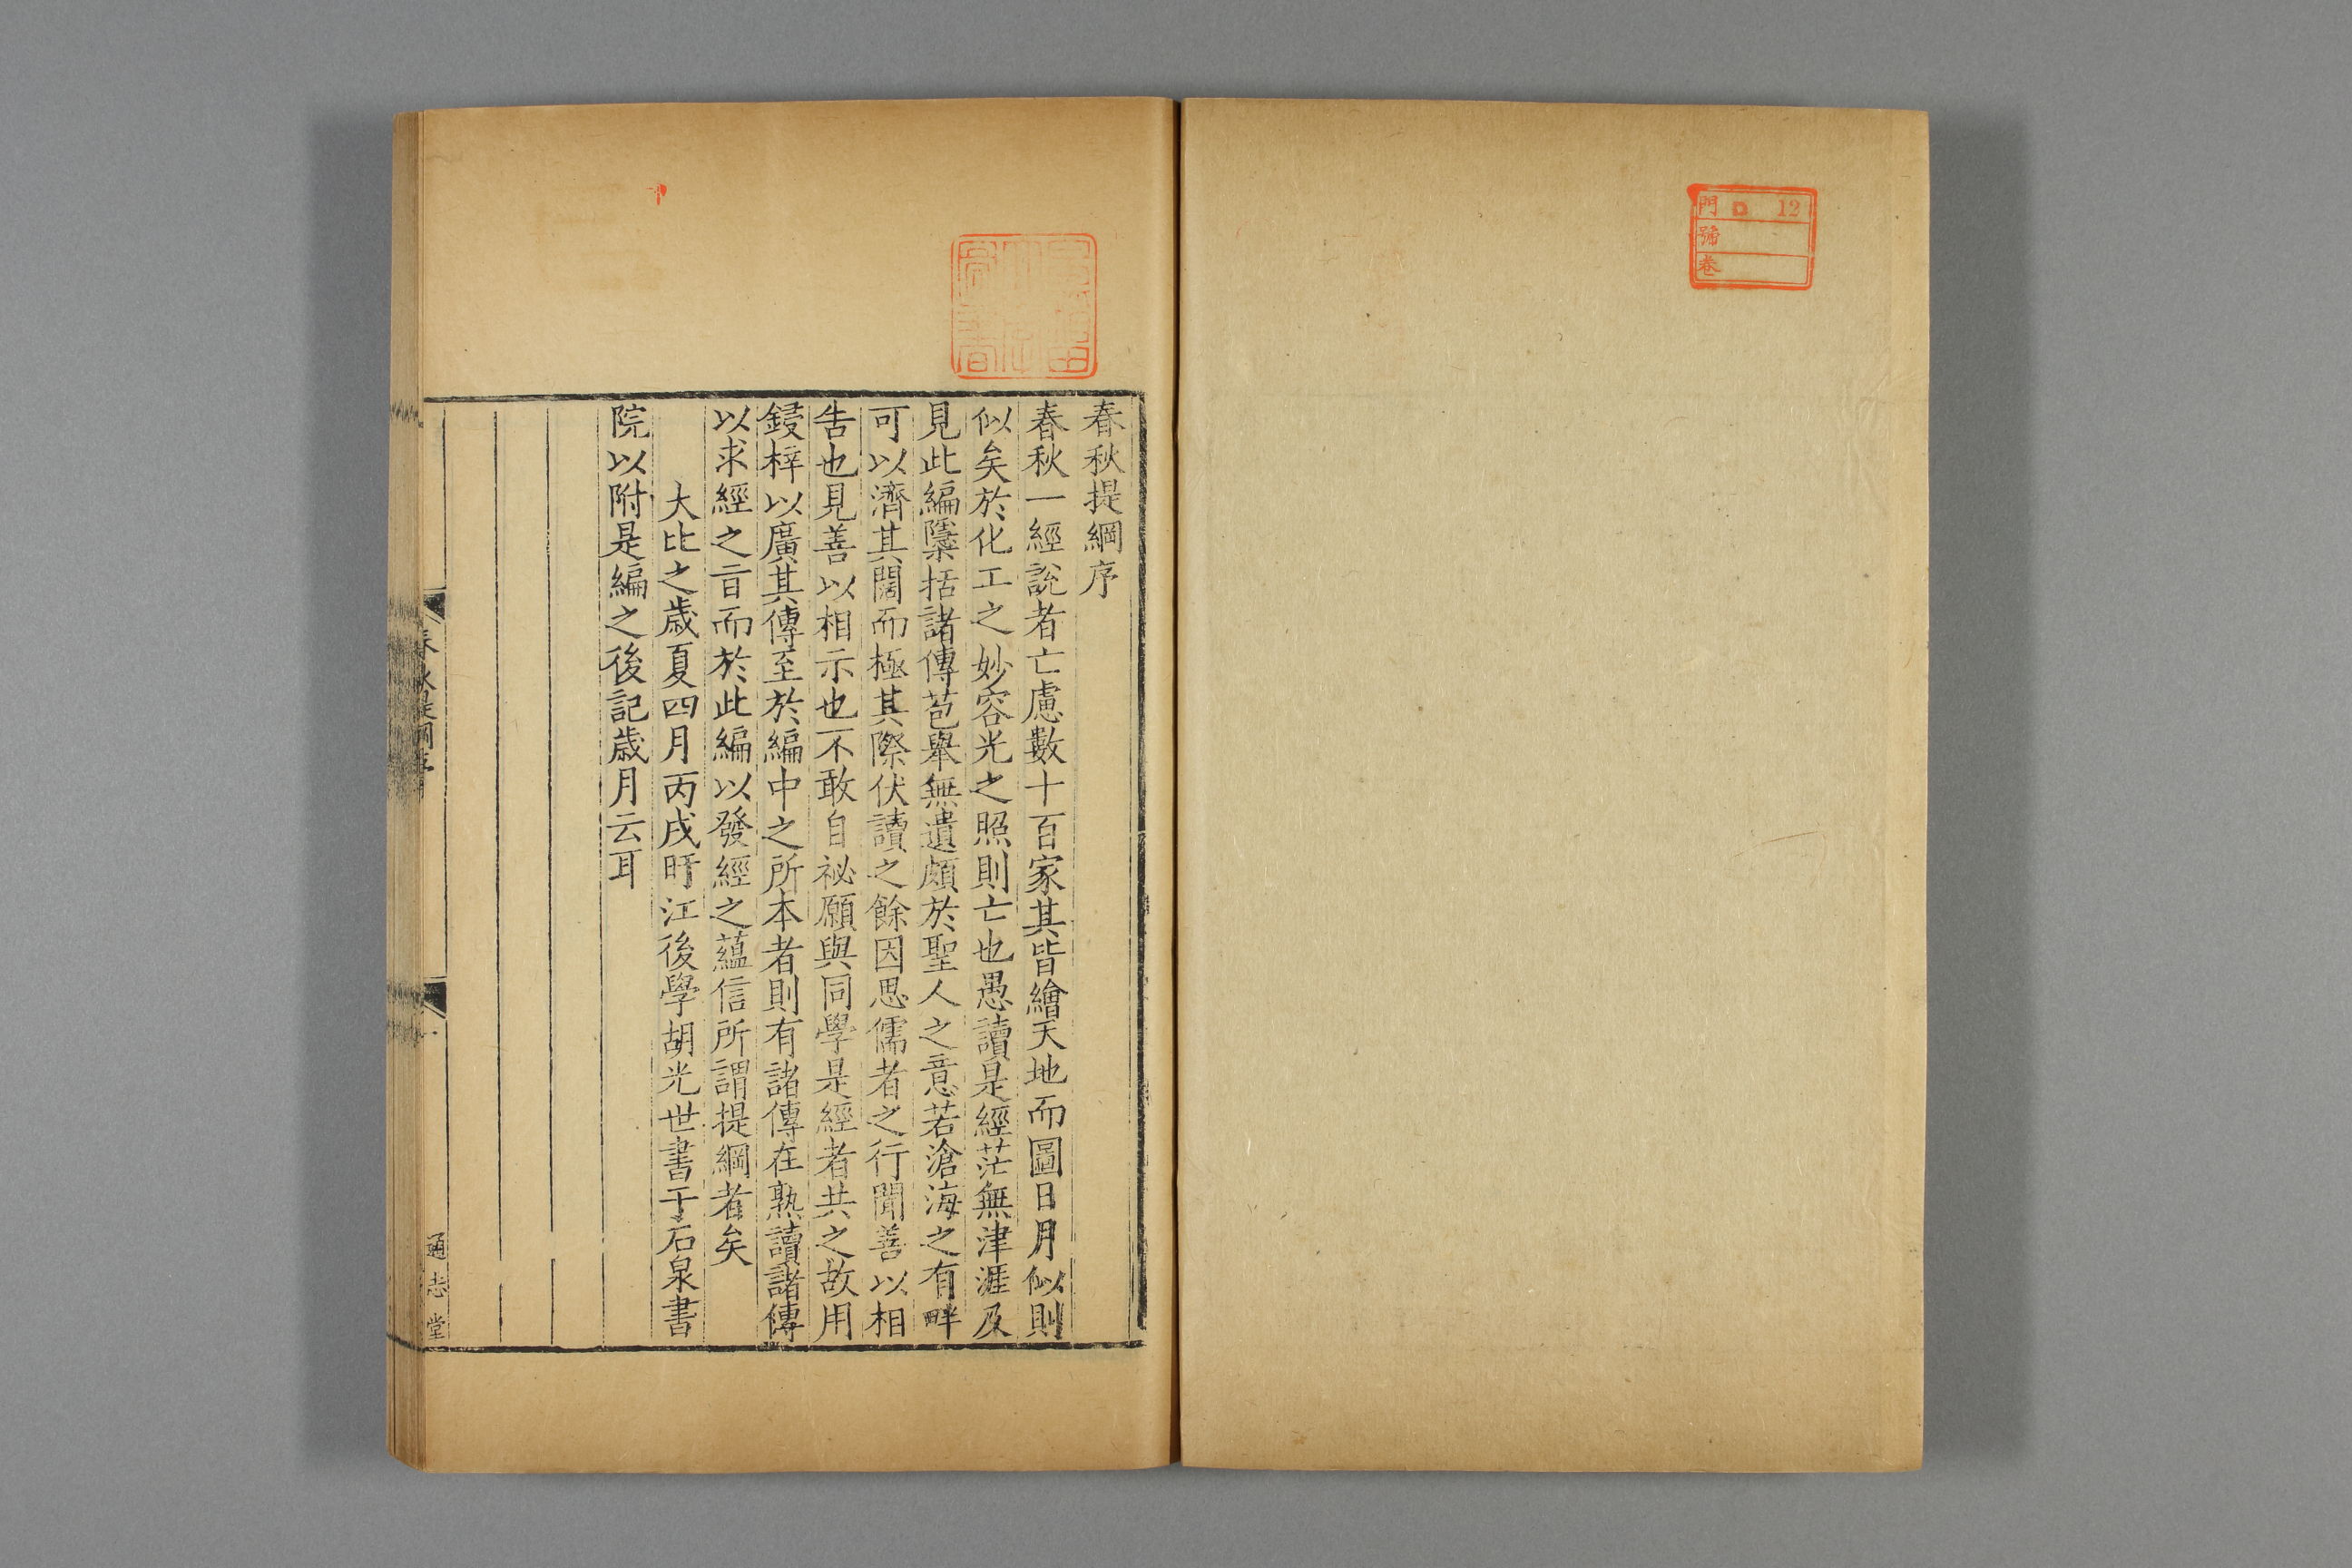 門 D 12
號
卷
春秋提綱序
春秋一經說者亡慮數十百家其皆繪天地而圖日月似則
似矣於化工之妙容光之照則亡也愚讀是經茫無津涯及
見此編隱括諸傳苞舉無遺頗於聖人之意若滄海之有畔
可以濟其闊而極其際伏讀之餘因思儒者之行聞善以相
告也見善以相示也不敢自祕願與同學是經者共之故用
鋟梓以廣其傳至於編中之所本者則有諸傳在熟讀諸傳
以求經之旨而於此編以發經之蘊信所謂提綱者矣
大比之歲夏四月丙戌旴江後學胡光世書于石泉書
院以附是編之後記歲月云耳
春秋提綱序
一
通志堂